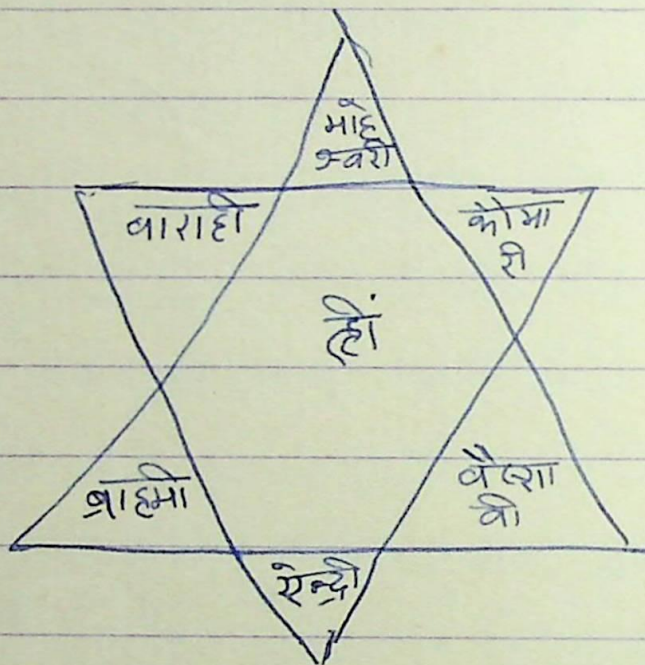 माहे
श्वरी
वाराही
कौमा
री
ह्रीं
ब्राह्मी
वैष्णा
वी
ऐन्द्री